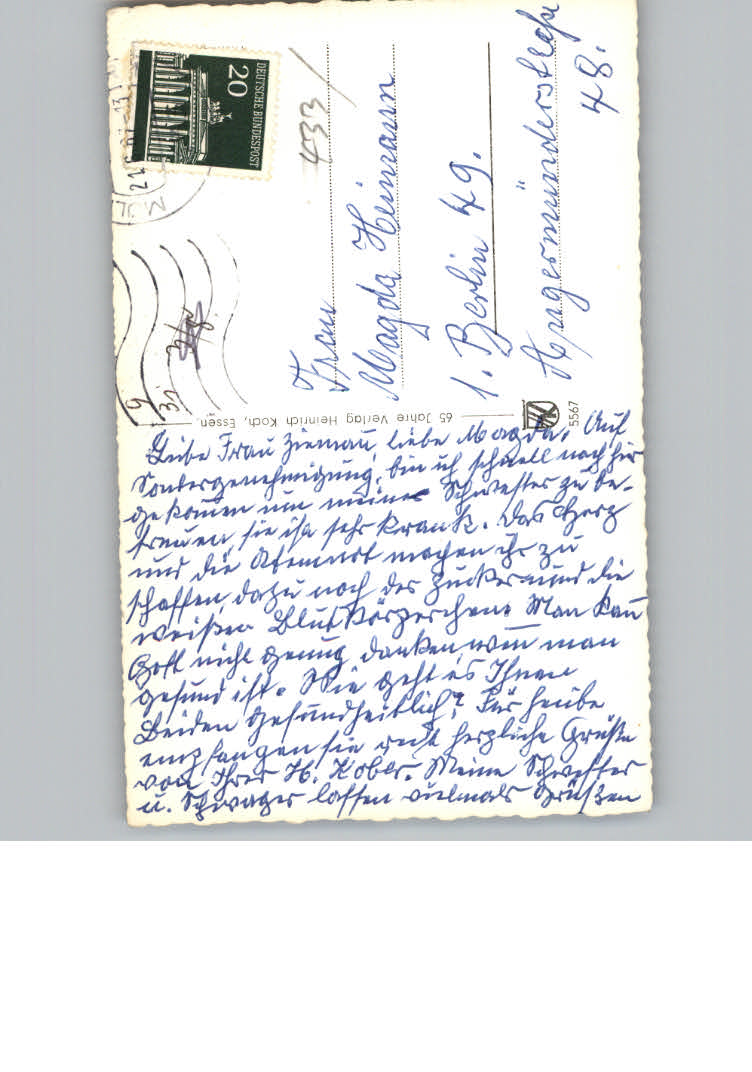 Liebe Frau Ziemau, liebe Magda. Auf
Sondergenehmigung, bin ich schnell noch hier
gekommen um meine Schwester zu be-
treuen, sie ist sehr krank. Das Herz
und die Atemnot machen ihr zu
schaffen, dazu noch der Zucker und die
weißen Blutkörperchen. Man kann
Gott nicht genug danken, wenn man
gesund ist. Wie geht es Ihnen
Beiden gesundheitlich? Für heute
empfangen sie recht herzliche Grüße
von Ihrer H. Kobler. Meine Schwester
u. Schwager lassen vielmals Grüßen
Frau
Magda Heimann
1. Berlin 49.
Angermünderstraße
48.
433/
DEUTSCHE BUNDESPOST
20
65 Jahre Verlag Heinrich Koch, Essen
5567